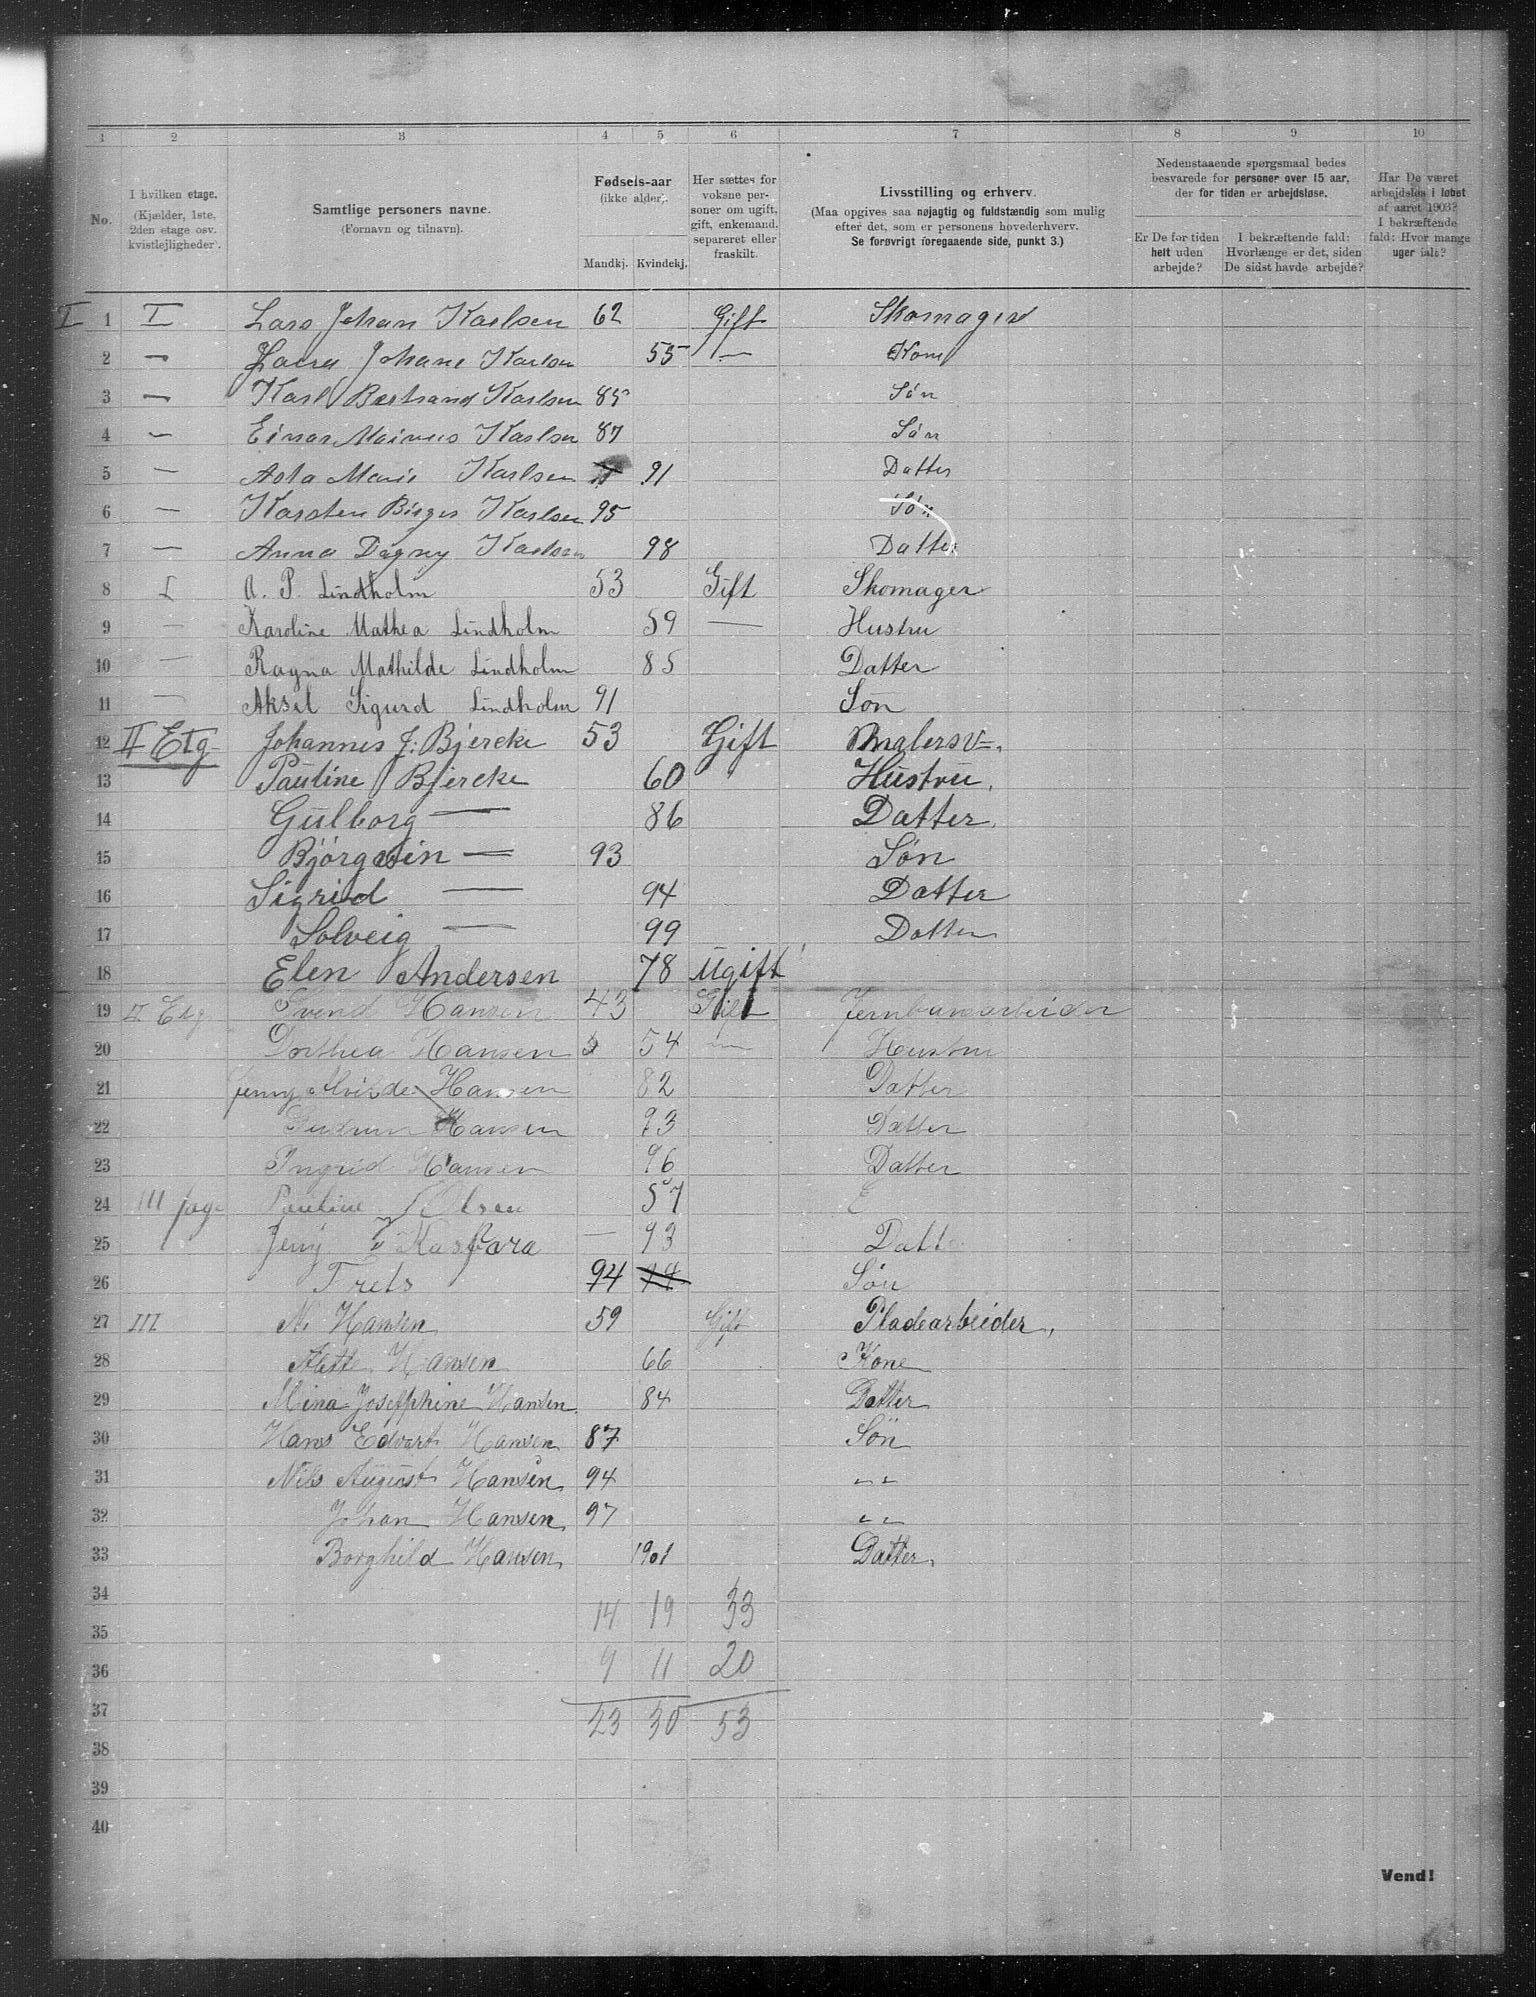 1 2 3 4 5 6 7 8 9 10
No.
I hvilken etage.
(Kjælder, 1ste,
2den etage osv.
kvistlejligheder).
Samtlige personers navne.
(Fornavn og tilnavn).
Fødsels-aar
(ikke alder).
Mandkj. Kvindekj.
Her sættes for
voksne per-
soner om ugift,
gift, enkemand,
separeret eller
fraskilt.
Livsstilling og erhverv.
(Maa opgives saa nøjagtig og fuldstændig som mulig
efter det, som er personens hovederhverv.
Se forøvrigt foregaaende side, punkt 3.)
Nedenstaaende spørgsmaal bedes
besvarede for personer over 15 aar,
der for tiden er arbejdsløse.
Er De for tiden
helt uden
arbejde?
I bekræftende fald:
Hvorlænge er det, siden
De sidst havde arbejde?
Har De været
arbejdsløs i løbet
af aaret 1903?
I bekræftende
fald: Hvor mange
uger ialt?
I 1 I Lars Johan Karlsen 62 Gift Skomager
2 — Johane Karlsen 55 — Kone
3 — Karl Bertrand Karlsen 85 Søn
4 — Einar Karlsen 87 Søn
5 — Asta Marie Karlsen 91 Datter
6 — Karsten Birger Karlsen 95 Søn
7 — Anna Dagny Karlsen 98 Datter
8 I A. P. Lindholm 53 Gift Skomager
9 — Karoline Mathea Lindholm 59 — Hustru
10 — Ragna Mathilde Lindholm 85 Datter
11 — Aksel Sigurd Lindholm 91 Søn
12 II Etg. Johannes J. Bjercke 53 Gift Malersv.
13 Pauline Bjercke 60 " Hustru.
14 Gulborg — 86 Datter.
15 Bjørgvin — 93 Søn
16 Sigrid — 94 Datter
17 Solveig — 99 Datter
18 Elen Andersen 78 Ugift
19 II Etg. Svend Hansen 43 Gift Jernbanearbeider
20 Dorthea Hansen 54 — Hustru
21 Jenny Alvilde Hansen 82 Datter
22 Gudrun Hansen 93 Datter
23 Ingrid Hansen 96 Datter
24 III Pauline Olsen 57 E
25 Jeny Kaspara — 93 Datt
26 Frets 94 Søn
27 III N. Hansen 59 Gift Pladearbeider,
28 Hansen 66 Kone
29 Mina Josephine Hansen 84 Datter
30 Hans Edvart Hansen 87 Søn
31 Nils August Hansen 94 " "
32 Johan Hansen 97 " "
33 Borghild Hansen 1901 Datter.
34 14 19 33
35
36 9 11 20
37 23 30 53
38
39
40
Vend!